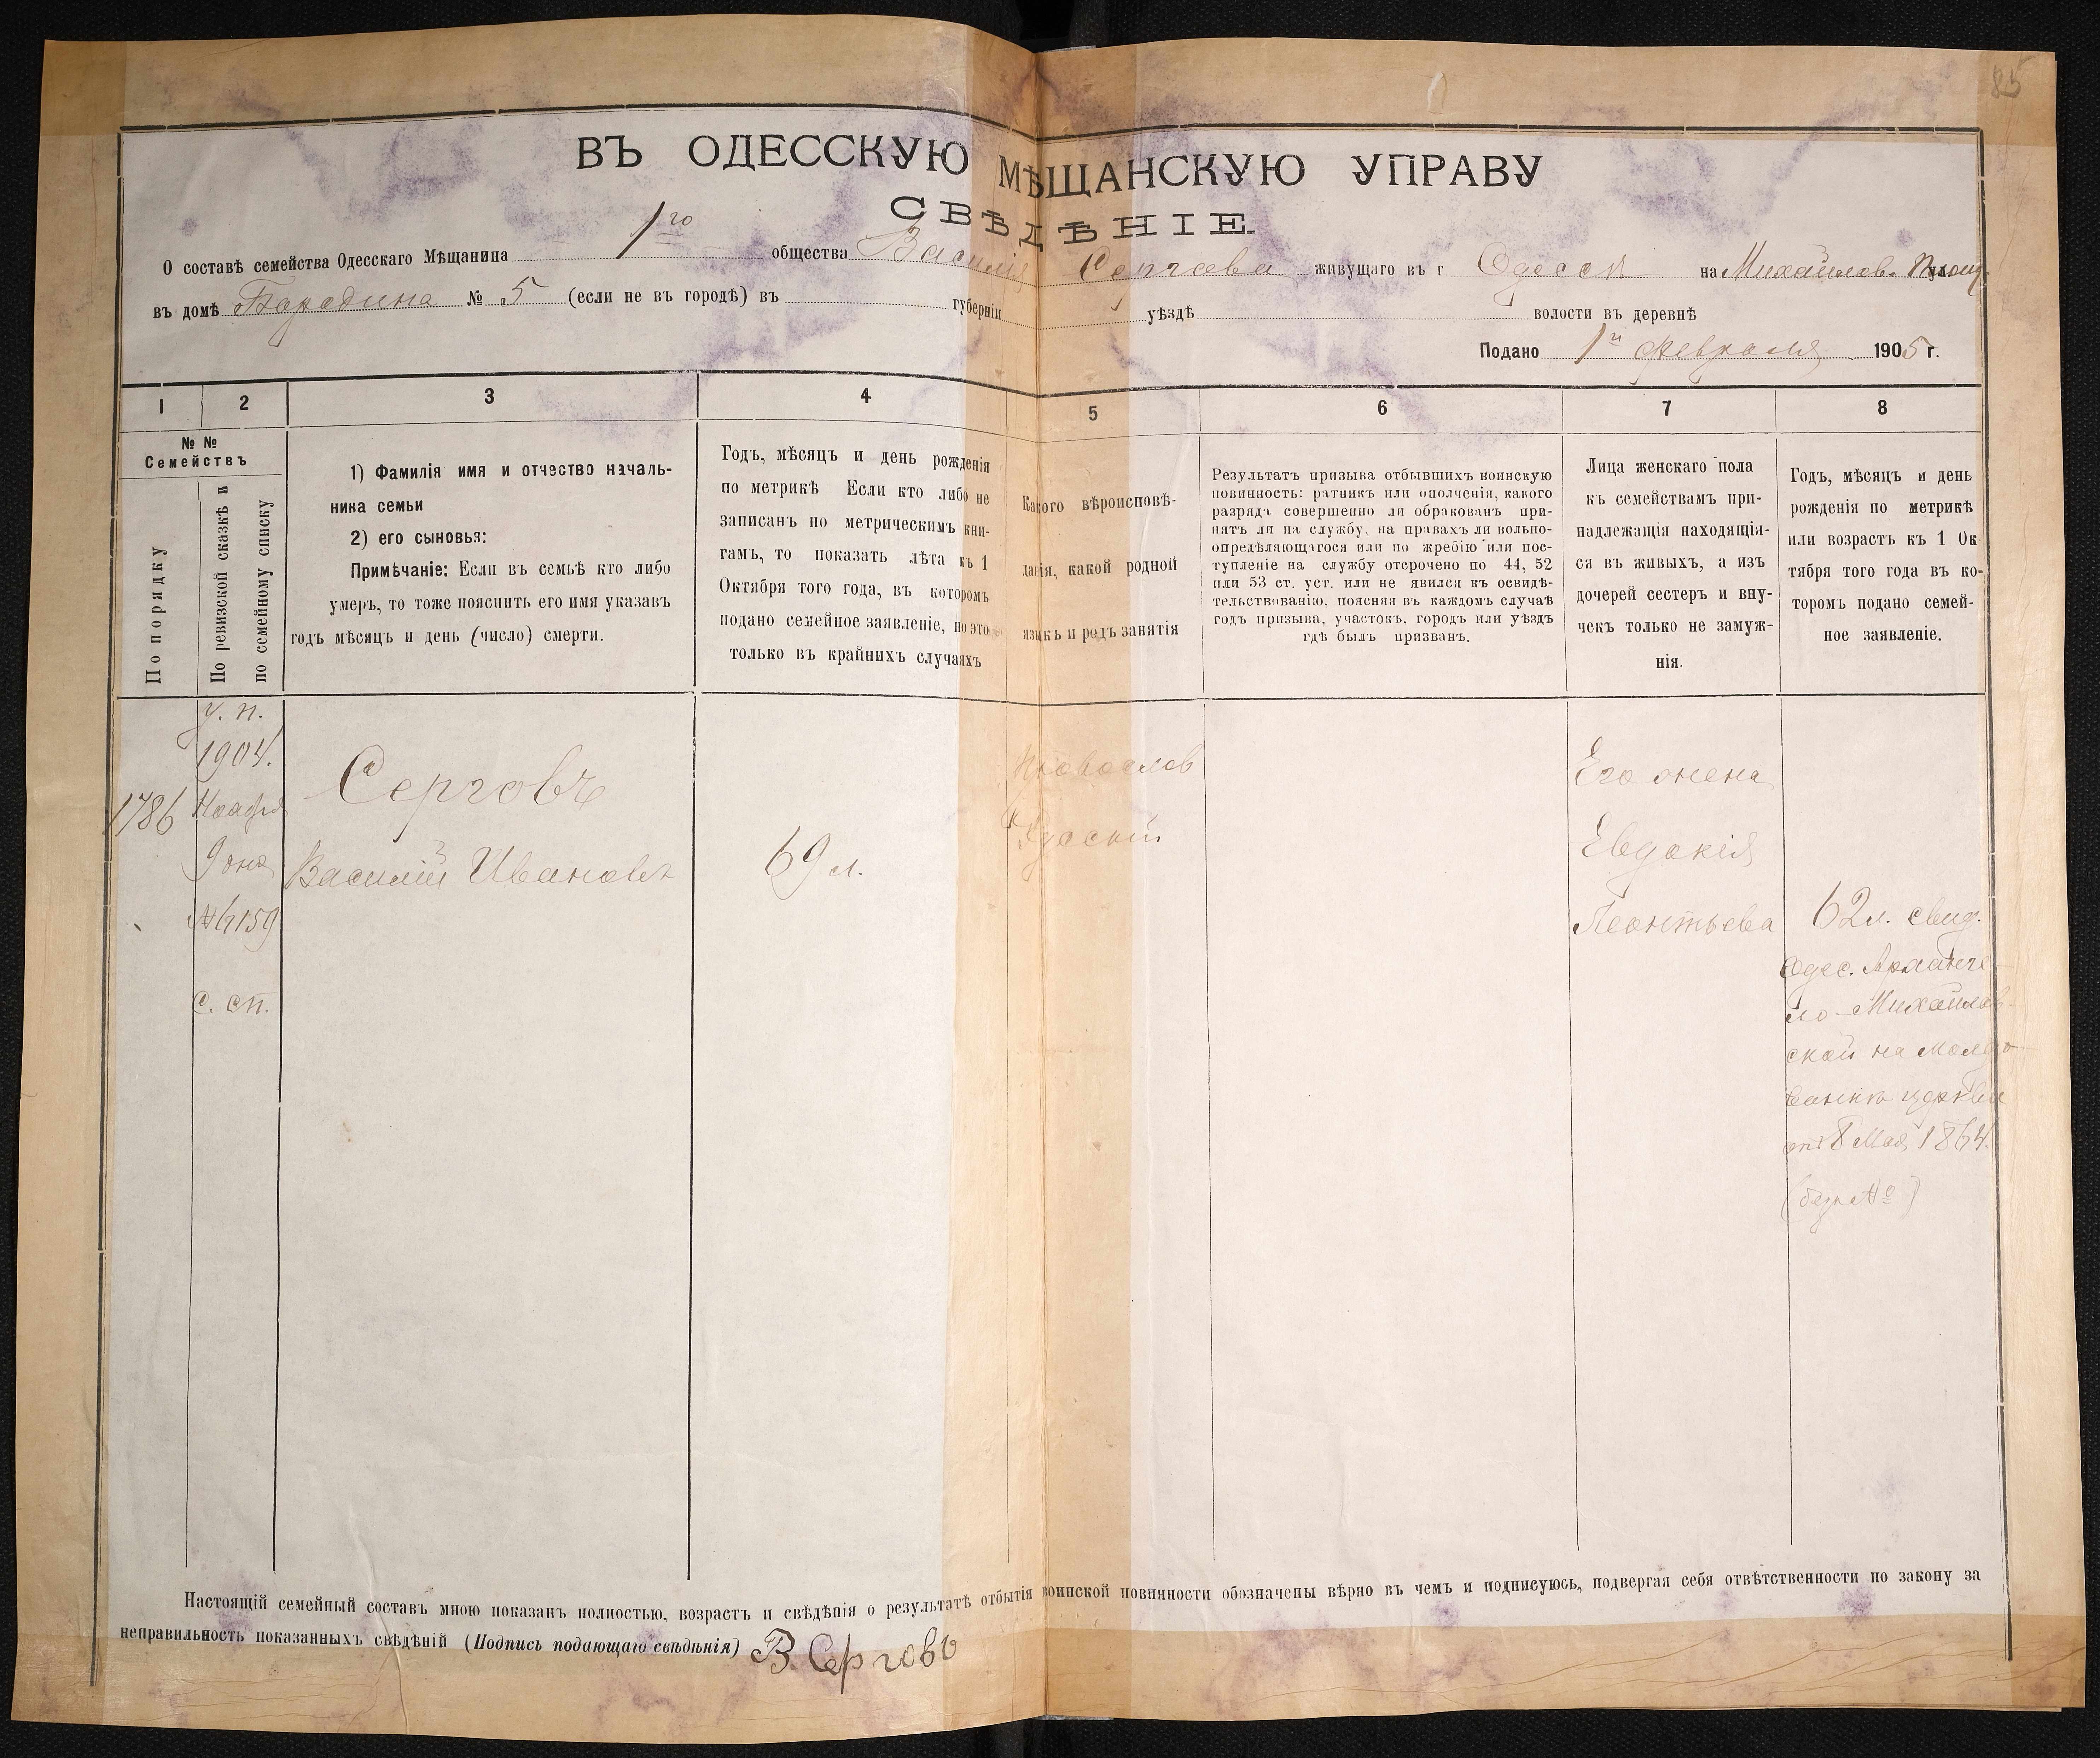 85
ВЪ ОДЕССКУЮ МѢЩАНСКУЮ УПРАВУ
СВѢДѢНІЕ.
О составѣ семейства Одесскаго Мѣщанина 1го общества Василія Сергова живущаго въ г Одессѣ на Михайлов. площ.
въ домѣ Бародина № 5 (если не въ городѣ) въ губерніи уѣздѣ волости въ деревнѣ
Подано 1го Февраля 1905 г.
1 2 3 4 5 6 7 8
№ №
Семействъ
По порядку
По ревизской сказкѣ и
по семейному списку
1) Фамилія имя и отчество началь-
ника семьи
2) его сыновья:
Примѣчаніе: Если въ семьѣ кто либо
умеръ, то тоже пояснить его имя указавъ
годъ мѣсяцъ и день (число) смерти.
Годъ, мѣсяцъ и день рожденія
по метрикѣ Если кто либо не
записанъ по метрическимъ кни-
гамъ, то показать лѣта къ 1
Октября того года, въ которомъ
подано семейное заявленіе, но это
только въ крайнихъ случаяхъ
Какого вѣроисповѣ-
данія, какой родной
языкъ и родъ занятія
Результатъ призыва отбывшихъ воинскую
повинность: ратникъ или ополченія, какого
разряда совершенно ли обракованъ при-
нятъ ли на службу, на правахъ ли вольно-
опредѣляющагося или по жребію или пос-
тупленіе на службу отсрочено по 44, 52
или 53 ст. уст. или не явился къ освидѣ-
тельствованію, поясняя въ каждомъ случаѣ
годъ призыва, участокъ, городъ или уѣздъ
гдѣ былъ призванъ.
Лица женскаго пола
къ семействамъ при-
надлежащія находящія-
ся въ живыхъ, а изъ
дочерей сестеръ и вну-
чекъ только не замуж-
нія.
Годъ, мѣсяцъ и день
рожденія по метрикѣ
или возрастъ къ 1 Ок
тября того года въ ко-
торомъ подано семей-
ное заявленіе.
1786
у. п.
1904.
Ноября
9 дня
№ 4159
с. сп.
Серговъ
Василій Ивановъ
69 л.
Православ
Русскій
Его жена
Евдокія
Леонтьева
62 л. свид.
Одес. Арханге-
ло-Михайлов-
ской на Молдо-
ванкѣ церкви
отъ 8 Мая 1864.
(безъ №)
Настоящій семейный составъ мною показанъ полностью, возрастъ и свѣдѣнія о результатѣ отбытія воинской повинности обозначены вѣрно въ чемъ и подписуюсь, подвергая себя отвѣтственности по закону за
неправильность показанныхъ свѣдѣній (Подпись подающаго свѣдѣнія) В. Серговъ